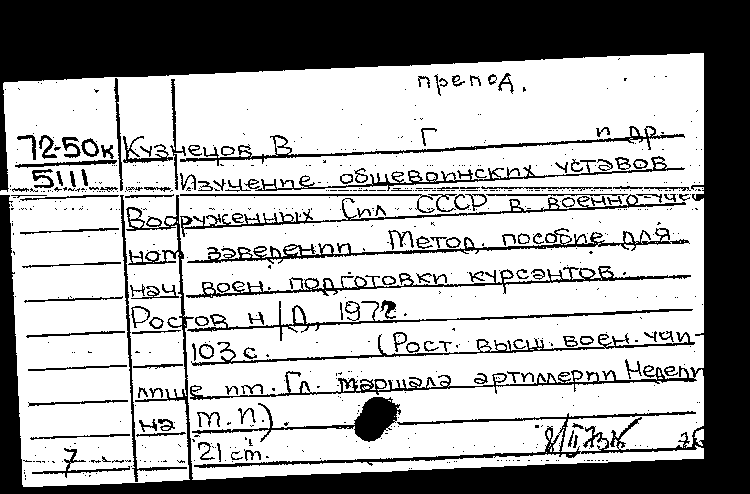 препод.
72-50к Кузнецов, В Г и др.
5111 Изучение общевоинских уставов
Вооруженных Сил СССР в военно-уче
ном заведении. Метод. пособие для
нач. воен. подготовки курсантов.
Ростов н/Д, 1972.
103 с. (Рост. высш. воен. учи-
лище им. Гл. маршала артиллерии Недели
на М.И.).
7 21 см. 8/II 73